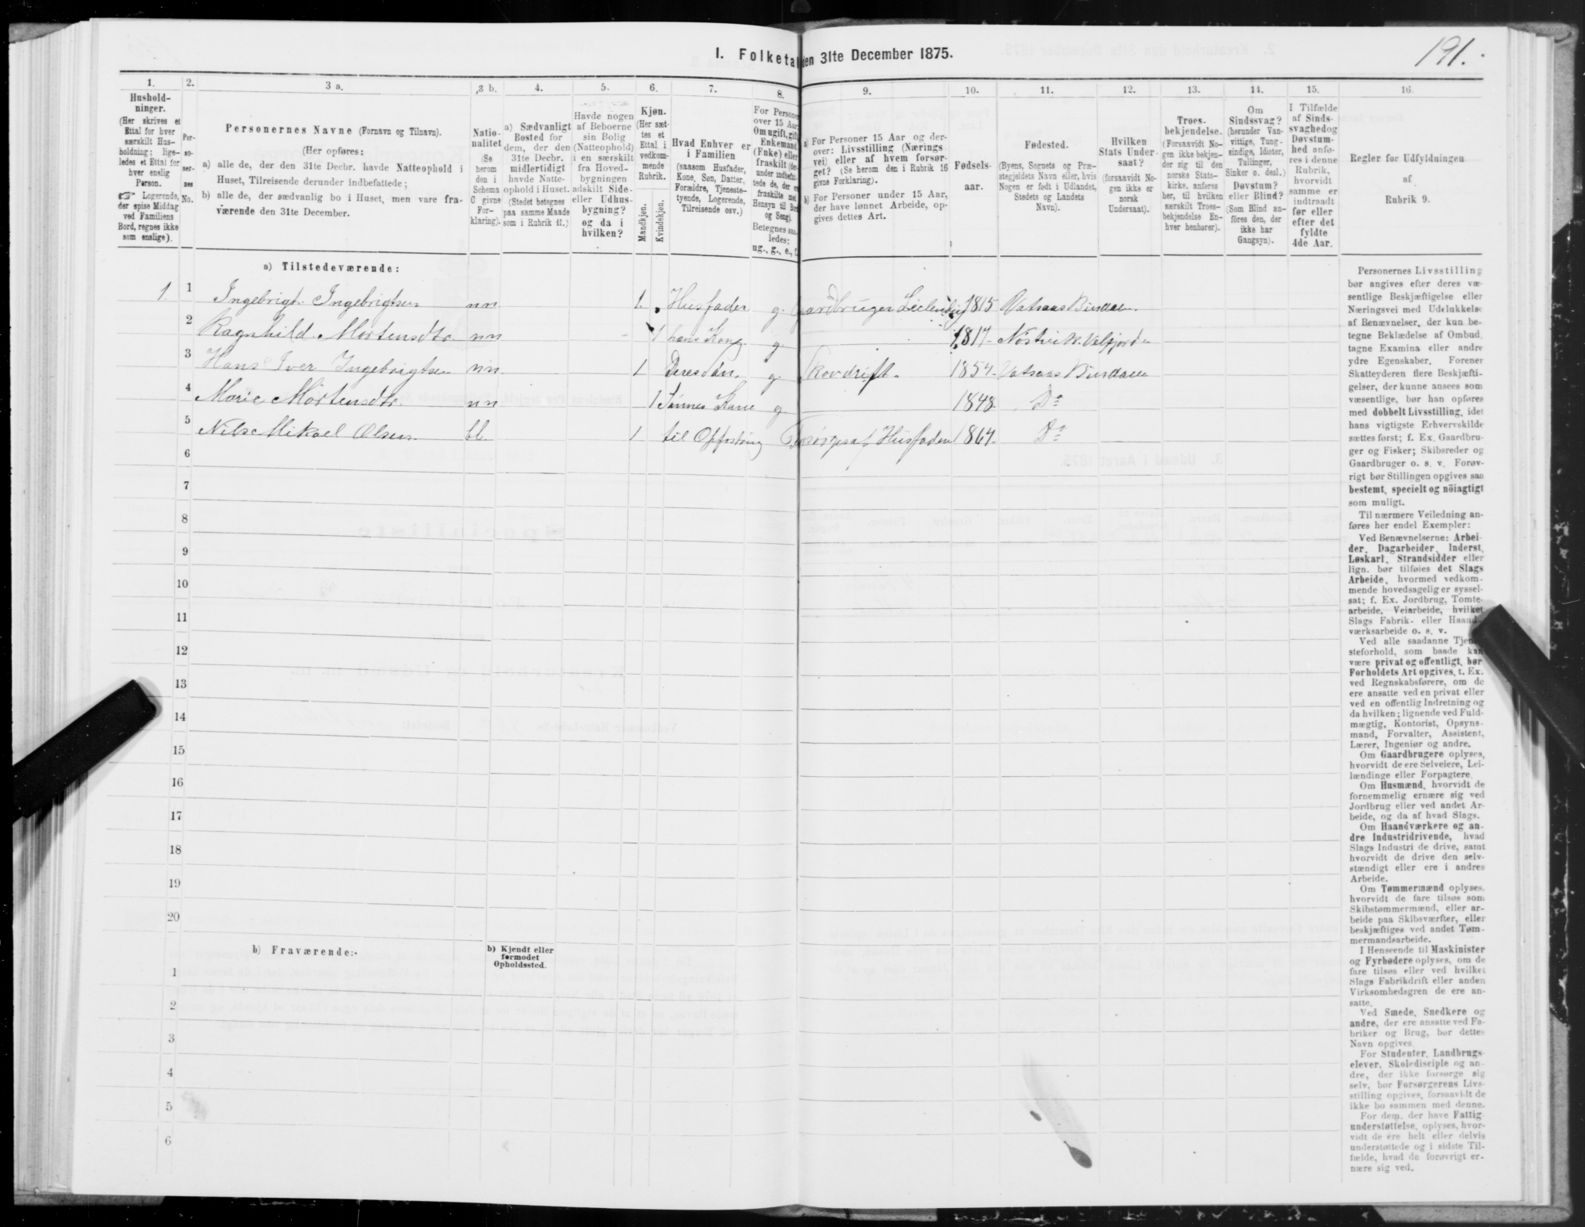 191.
I. Folketa den 31te December 1875.
1.
2.
3 a.
3 b.
4.
5.
6.
7.
8.
9.
10.
11.
12.
13.
14.
15.
16.
Hushold-
ninger.
(Her skrives et
Ettal for hver
særskilt Hus-
holdning; lige-
ledes et Ettal for
hver enslig
Person.
☞ Logerende,
der spise Middag
ved Familiens
Bord, regnes ikke
som enslige).
Per-
so-
ner-
nes
No.
Personernes Navne (Fornavn og Tilnavn).
(Her opføres:
a) alle de, der den 31te Decbr. havde Natteophold i
Huset, Tilreisende derunder indbefattede;
b) alle de, der sædvanlig bo i Huset, men vare fra-
værende den 31te December.
Natio-
nalitet
(Se
herom
den i
Schema
C givne
For-
klaring).
a) Sædvanligt
Bosted for
dem, der den
31te Decbr.
midlertidigt
havde Natte-
ophold i Huset.
(Stedet betegnes
paa samme Maade
som i Rubrik 11.)
Havde nogen
af Beboerne
sin Bolig
(Natteophold)
i en særskilt
fra Hoved-
bygningen
adskilt Side-
eller Udhus-
bygning?
og da i
hvilken?
Kjøn.
(Her sæt-
tes et
Ettal i
vedkom-
mende
Rubrik.
Mandkjøn.
Kvindekjøn.
Hvad Enhver er
i Familien
(saasom Husfader,
Kone, Søn, Datter,
Forældre, Tjeneste-
tyende, Logerende,
Tilreisende osv.)
For Persone
over 15 Aar
Om ugift, gift
Enkemand
(Enke) eller
fraskilt
Betegnes saa-
ledes:
ug., g., e., f.
a) For Personer 15 Aar og der-
over: Livsstilling (Nærings
vei) eller af hvem forsør-
get? (Se herom den i Rubrik 16
givne Forklaring).
b) For Personer under 15 Aar,
der have lønnet Arbeide, op-
gives dettes Art.
Fødsels-
aar.
Fødested.
(Byens, Sognets og Præ-
stegjeldets Navn eller, hvis
Nogen er født i Udlandet,
Stedets og Landets
Navn).
Hvilken
Stats Under-
saat?
(forsaavidt No-
gen ikke er
norsk
Undersaat).
Troes-
bekjendelse.
(Forsaavidt No-
gen ikke bekjen-
der sig til den
norske Stats-
kirke, anføres
her, til hvilken
særskilt Troes-
bekjendelse En-
hver henhører).
Om
Sindssvag?
(herunder Van-
vittige, Tung-
sindige, Idioter,
Tullinger,
Sinker o. desl.)
Døvstum?
eller Blind?
(Som Blind an-
føres den, der
ikke har
Gangsyn).
I Tilfælde
af Sinds-
svaghedog
Døvstum-
hed anfø-
res i denne
Rubrik,
hvorvidt
samme er
indtraadt
før eller
efter det
fyldte
4de Aar.
Regler for Udfyldningen
af
Rubrik 9.
a) Tilstedeværende:
1 1 Ingebrigt Ingebrigtsen nn 1 Husfader g Gaardbruger Leilending 1815 Vatsaas Bindalen
2 Ragnhild Mortensdtr nn 1 hans Kone g 1817 Nostvik Velfjorden
3 Hans Iver Ingebrigtsen nn 1 Deres Søn g Skovdrift. 1854 Vatsaas Bindalen
4 Marie Mortensdtr nn 1 Sønnes Kone g 1848 Do
5 Nils Mikael Olsen bl 1 til Opfostring Forsørges af Husfaderen 1864 Do
6
7
8
9
10
11
12
13
14
15
16
17
18
19
20
b) Fraværende:-
b) Kjendt eller
formodet
Opholdssted.
1
2
3
4
5
6
Personernes Livsstilling
bør angives efter deres væ-
sentlige Beskjæftigelse eller
Næringsvei med Udelukkelse
af Benævnelser, der kun be-
tegne Beklædelse af Ombud,
tagne Examina eller andre
ydre Egenskaber. Forener
Skatteyderen flere Beskjæfti-
gelser, der kunne ansees som
væsentlige, bør han opføres
med dobbelt Livsstilling, idet
hans vigtigste Erhvervskilde
sættes først; f. Ex. Gaardbru-
ger og Fisker; Skibsreder og
Gaardbruger o. s. v. Forøv-
rigt bør Stillingen opgives saa
bestemt, specielt og nöiagtigt
som muligt.
Til nærmere Veiledning an-
føres her endel Exempler:
Ved Benævnelserne: Arbei-
der, Dagarbeider, Inderst,
Løskarl, Strandsidder eller
lign. bør tilføies det Slags
Arbeide, hvormed vedkom-
mende hovedsagelig er syssel-
sat; f. Ex. Jordbrug, Tomte-
arbeide, Veiarbeide, hvilket
Slags Fabrik- eller Haand-
værksarbeide o. s. v.
Ved alle saadanne Tjene-
steforhold, som baade kan
være privat og offentligt, bør
Forholdets Art opgives, t. Ex.
ved Regnskabsførere, om de
ere ansatte ved en privat eller
ved en offentlig Indretning og
da hvilken; lignende ved Fuld-
mægtig, Kontorist, Opsyns-
mand, Forvalter, Assistent,
Lærer, Ingeniør og andre.
Om Gaardbrugere oplyses,
hvorvidt de ere Selveiere, Lei-
lændinge eller Forpagtere.
Om Husmænd, hvorvidt de
fornemmelig ernære sig ved
Jordbrug eller ved andet Ar-
beide, og da af hvad Slags.
Om Haandværkere og an-
dre Industridrivende, hvad
Slags Industri de drive, samt
hvorvidt de drive den selv-
stændigt eller ere i andres
Arbeide.
Om Tømmermænd oplyses,
hvorvidt de fare tilsøs som
Skibstømmermænd, eller ar-
beide paa Skibsværfter, eller
beskjæftiges ved andet Tøm-
mermandsarbeide.
I Henseende til Maskinister
og Fyrbødere oplyses, om de
fare tilsøs eller ved hvilket
Slags Fabrikdrift eller anden
Virksomhedsgren de ere an-
satte.
Ved Smede, Snedkere og
andre, der ere ansatte ved Fa-
briker og Brug, bør dettes
Navn opgives.
For Studenter, Landbrugs-
elever, Skoledisciple og an-
dre, der ikke forsørge sig
selv, bør Forsørgerens Livs-
stilling opgives, forsaavidt de
ikke bo sammen med denne.
For dem, der have Fattig-
understøttelse, oplyses, hvor-
vidt de ere helt eller delvis
understøttede og i sidste Til-
fælde, hvad de forøvrigt er-
nære sig ved.